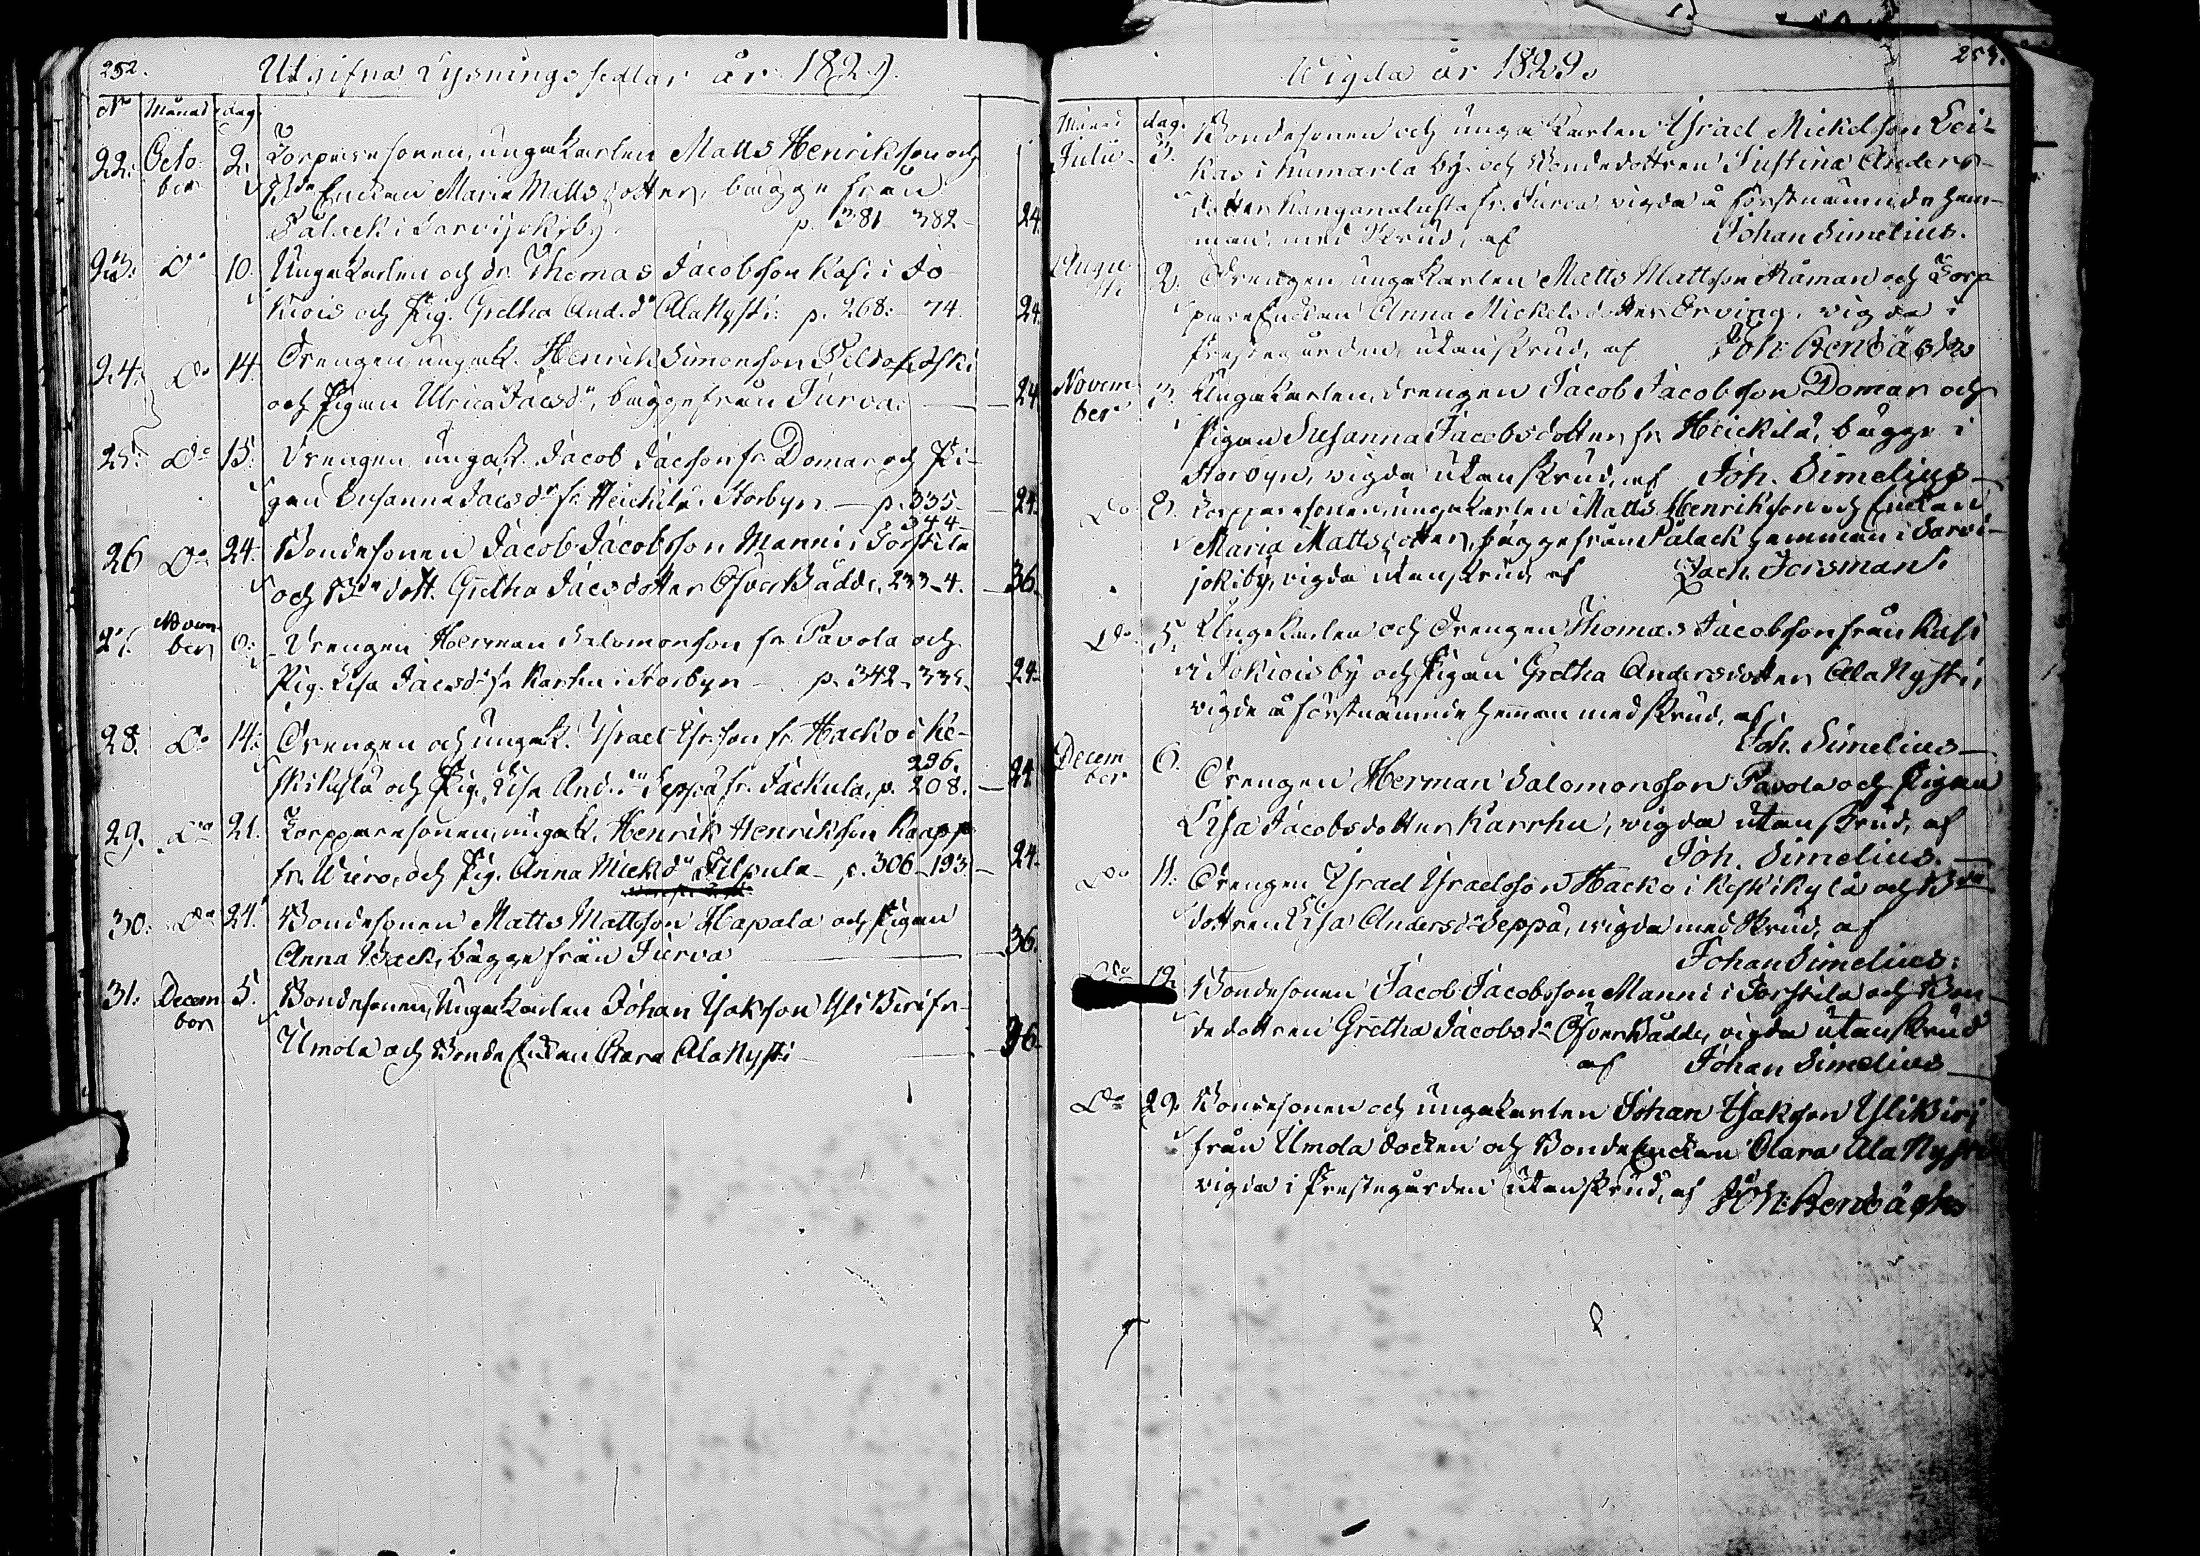 252.
Utgifna Lysnings sedlar år 1829.
No Månad dag.
22. October 2. Torparesonen, ungakarlen Matts Henriksson och
Bde Enckan Maria Matts dotter, bägge från
Pälack i Sarvijokiby. p. 381 382 24.
23. Do 10. Ungakarlen och dr. Thomas Jacobsson Kasi i Jo-
kiois och Pig. Gretha And.dr AlaNysti: p. 268. 74. 24.
24. Do 14. Drengen ungak. Henrik Simonsson
och Pigan Ulrica Jacsdr, bägge från Jurva. 24
25. Do 15. Drengen ungak. Jacob Jacsson fr. Domar och Pi-
gan Susanna Jacsdr fr. Heickilä i Storbyn p. 335. 24.
344
26 Do 24. Bondesonen Jacob Jacobsson Manni i Torstila
och Bde dott. Gretha Jacsdotter ÖfverBädde, 233-4. 36.
27. November 8. Drengen Herman Salomonsson fr. Pavola och
Pig. Lisa Jacsdr fr Karhu i Storbyn p. 342, 335. 24.
28. Do 14. Drengen och ungak. Israel Isr.sson fr. Hacko i Ke-
296.
skikylä och Pig. Lisa And.dr Seppä fr. Jackula, p. 208. 24
29. Do 21. Torpparesonen, ungak. Henrik Henriksson Knapp
fr. Wiiro, och Pig. Anna Mickdr Filpula p. 306-193. 24.
30. Do 21. Bondesonen Matts Mattsson Hapala och Pigan
Anna Back, bägge från Jurva 36.
31. December 5. Bondesonen, Ungakarlen Johan Isaksson YliBiri fr.
Umola och Bonde Enckan Clara AlaNysti 36.
Wigda år 1829.
253.
Månad dag.
Julii 3. Bondesonen och ungakarlen Israel Mickelsson Lei-
kas i Kumarla by och Bondedottren Justina Anders-
dotter Kanganalusta fr. Jurva, vigda å förstnämnde hem-
man, med Skrud, af Johan Simelius.
Augusti 2. Drengen ungakarlen Matts Mattsson Råman och Torp
pareEnckan Anna Mickelsdotter Erving, vigda i
Prestegården, utan Skrud, af Joh: Benbäck
November 3. Ungakarlen, drengen Jacob Jacobsson Domar och
Pigan Susanna Jacobsdotter fr. Heickilä, bägge i
Storbyn, vigda utan Skrud, af Joh. Simelius
Do 8. Torpparesonen, ungakarlen Matts Henriksson och Enckan
Maria Mattsdotter, bägge från Pälack hemman i Sarvi-
jokiby, vigda utan Skrud af Zach. Forsman.
Do 5. Ungakarlen och Drengen Thomas Jacobsson från Kasi
i Jokiois by och Pigan Gretha Andersdotter AlaNysti,
vigde å förstnämnde Hemman med Skrud, af
Joh. Simelius
December 6. Drengen Herman Salomonsson Pavola och Pigan
Lisa Jacobsdotter Karrhu, vigda utan Skrud, af
Joh. Simelius.
Do 11. Drengen Israel Israelsson Hacko i Keskikylä och Bde
dottren Lisa Andersdr Seppä, vigda med Skrud, af
Johan Simelius.
Do Bondesonen Jacob Jacobsson Manni i Torstila och Bon-
dedottren Gretha Jacobsdr ÖfverBädde, vigda utan Skrud
af Johan Simelius
Do 29. Bondesonen och ungakarlen Johan Isaksson YliBiri
från Umola Socken och Bonde Enckan Clara AlaNysti
vigda i Prestegården utan Skrud, af Joh: Benbäck